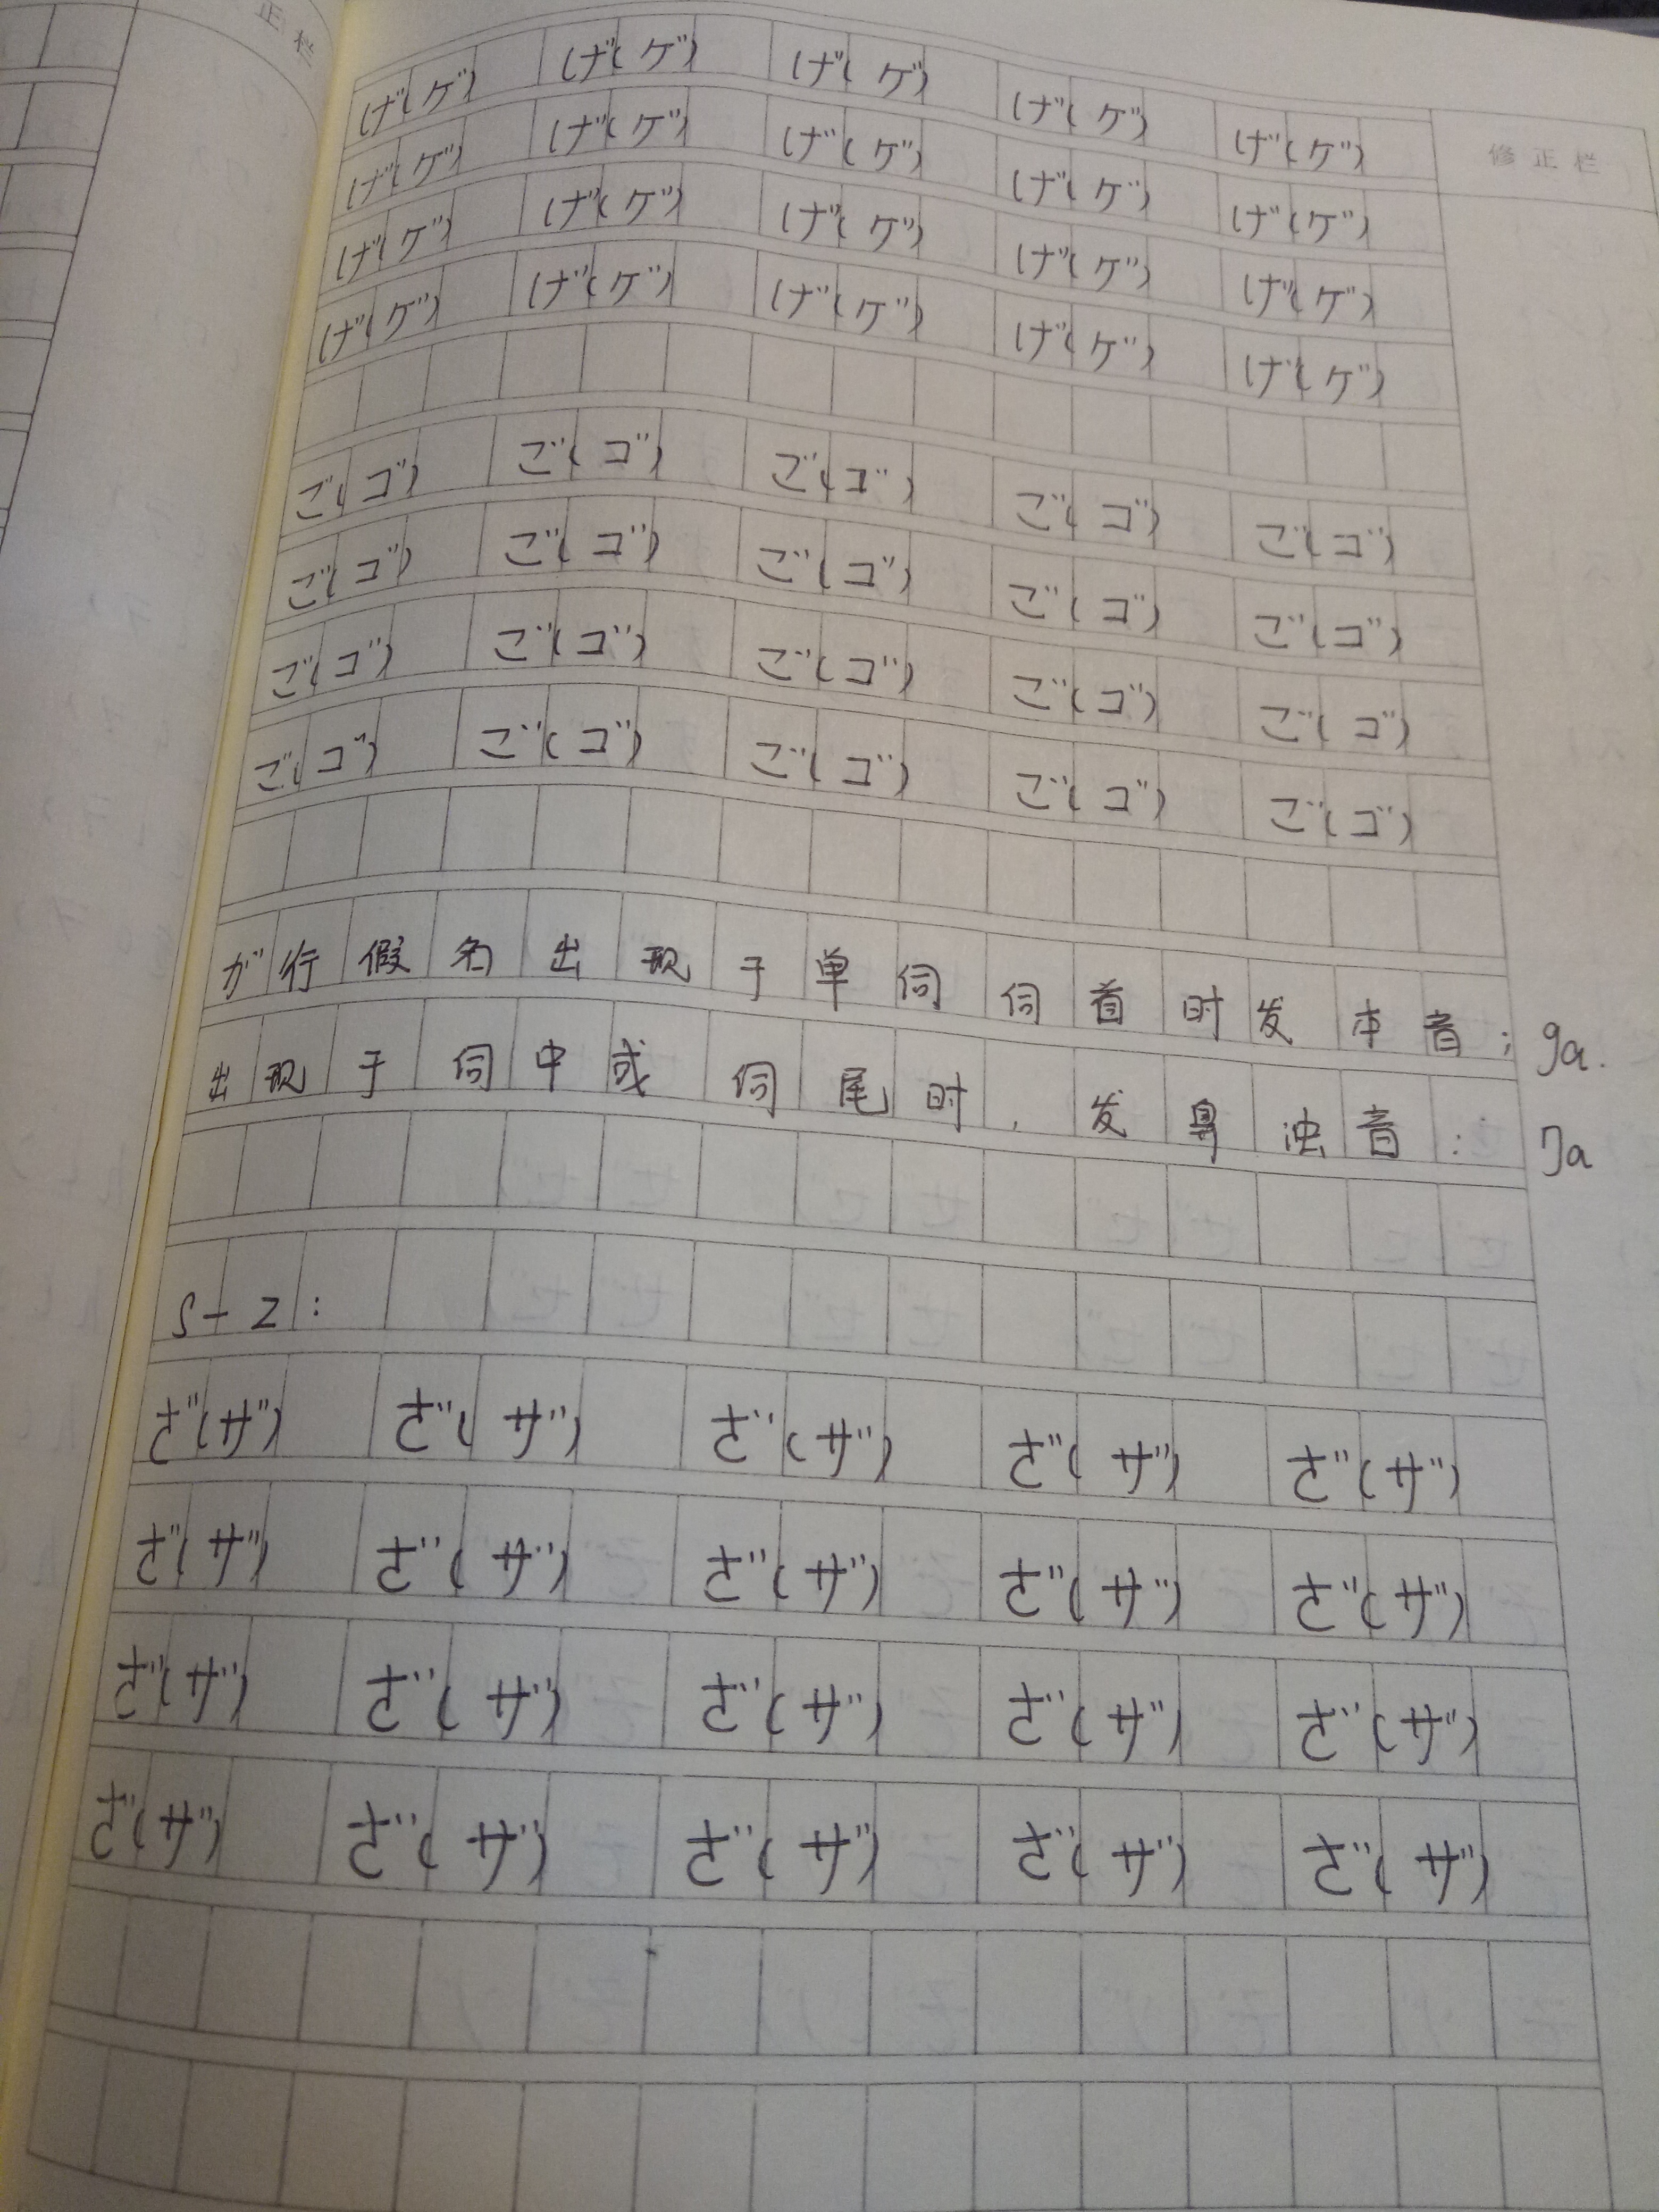 正栏
げ(ゲ) げ(ゲ) げ(ゲ) げ(ゲ) げ(ゲ)
修正栏
げ(ゲ) げ(ゲ) げ(ゲ) げ(ゲ) げ(ゲ)
げ(ゲ) げ(ゲ) げ(ゲ) げ(ゲ) げ(ゲ)
げ(ゲ) げ(ゲ) げ(ゲ) げ(ゲ) げ(ゲ)
ご(ゴ) ご(ゴ) ご(ゴ) ご(ゴ) ご(ゴ)
ご(ゴ) ご(ゴ) ご(ゴ) ご(ゴ) ご(ゴ)
ご(ゴ) ご(ゴ) ご(ゴ) ご(ゴ) ご(ゴ)
ご(ゴ) ご(ゴ) ご(ゴ) ご(ゴ) ご(ゴ)
が行假名出现于单词词首时发本音; ga.
出现于词中或词尾时,发鼻浊音: ŋa
s-z:
ざ(ザ) ざ(ザ) ざ(ザ) ざ(ザ) ざ(ザ)
ざ(ザ) ざ(ザ) ざ(ザ) ざ(ザ) ざ(ザ)
ざ(ザ) ざ(ザ) ざ(ザ) ざ(ザ) ざ(ザ)
ざ(ザ) ざ(ザ) ざ(ザ) ざ(ザ) ざ(ザ)